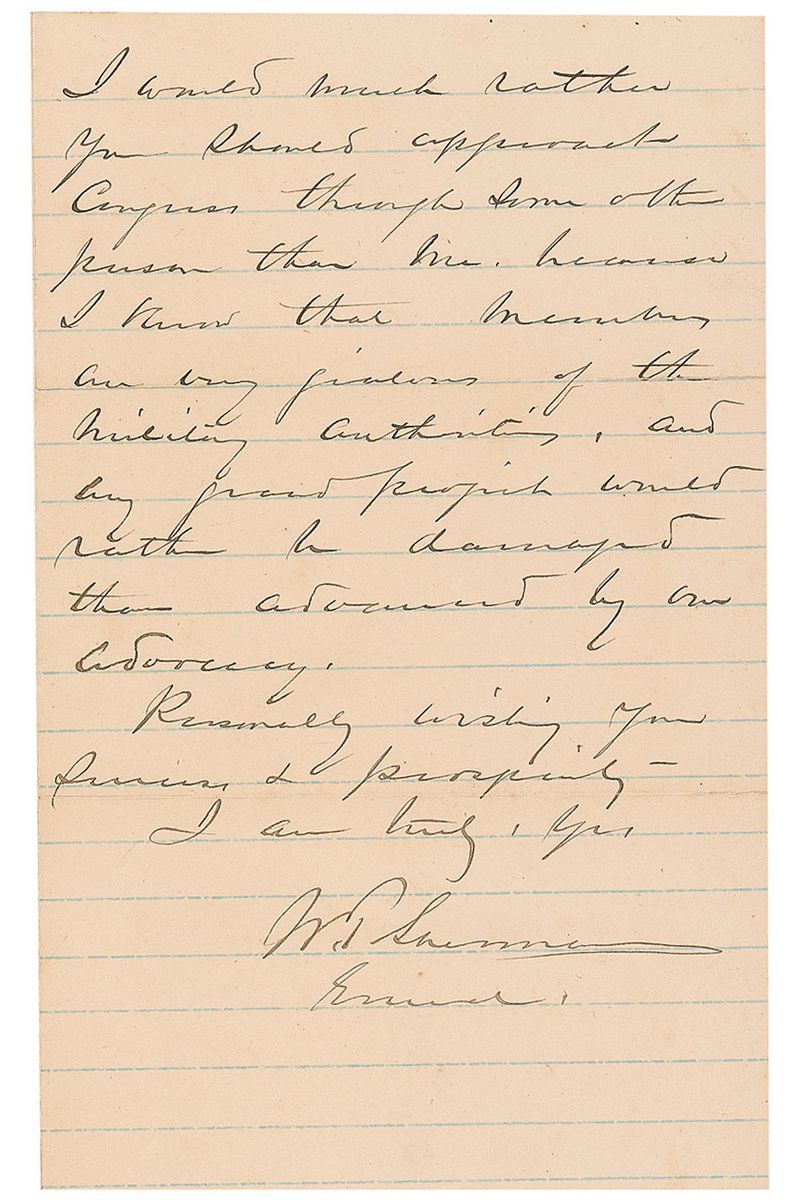 I would much rather
you should approach
Congress through some other
person than me. because
I know that members
are very jealous of the
military authorities, and
any grand project would
rather be damaged
than advanced by our
advocacy.
Personally wishing you
success & prosperity
I am truly, yrs,
W.T. Sherman
Genral.